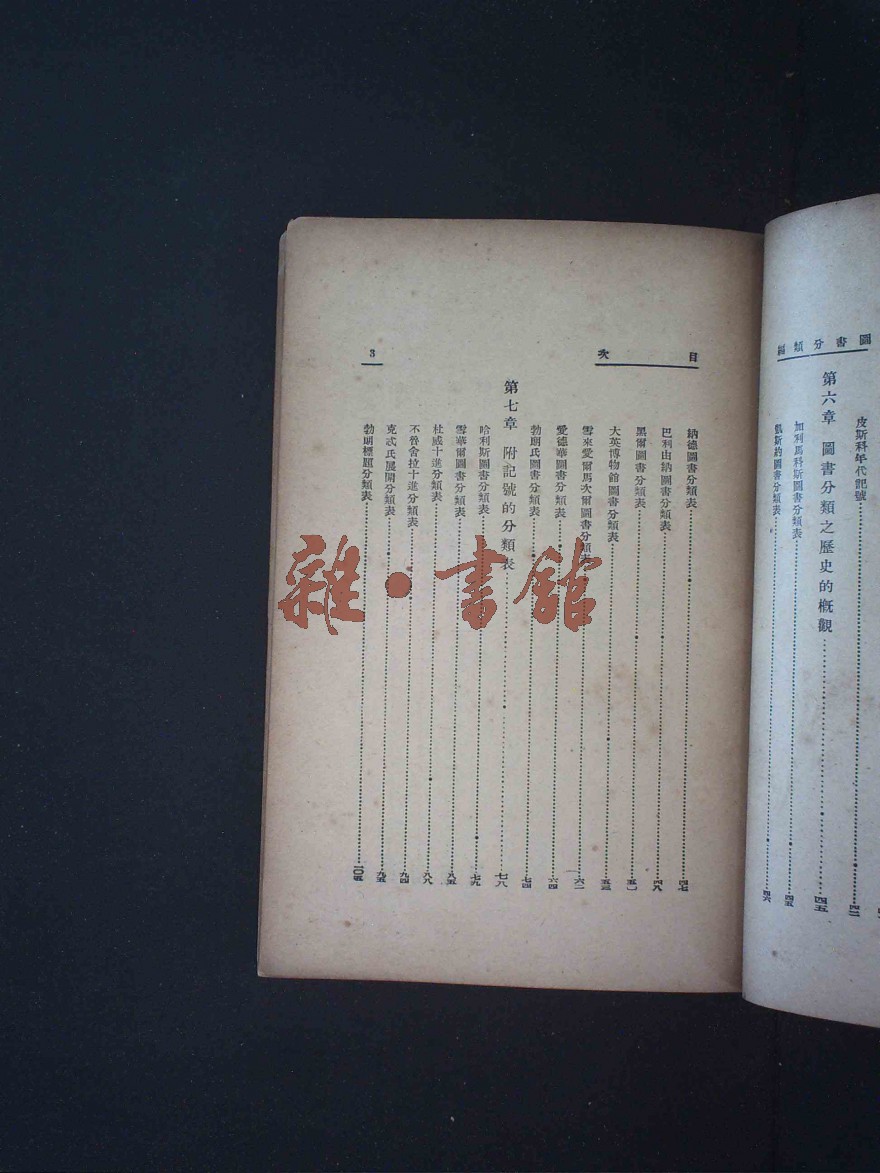 圖書分類編
皮斯科年代記號 四二
第六章 圖書分類之歷史的概觀 四五
加利馬科斯圖書分類表 四五
凱斯約圖書分類表 四六
目 次 3
納德圖書分類表 四七
巴利由納圖書分類表 四八
黑爾圖書分類表
大英博物館圖書分類表
雪來愛爾馬次爾圖書分類 六二
愛德華圖書分類表 六四
勃朗氏圖書分類表 七四
第七章 附記號的分類表 七八
哈利斯圖書分類表 七九
雪華爾圖書分類表 八五
杜威十進分類表 八八
不魯舍拉十進分類表 九四
克忒氏展開分類表 九五
勃朗標題分類表 一〇五
雜·書館